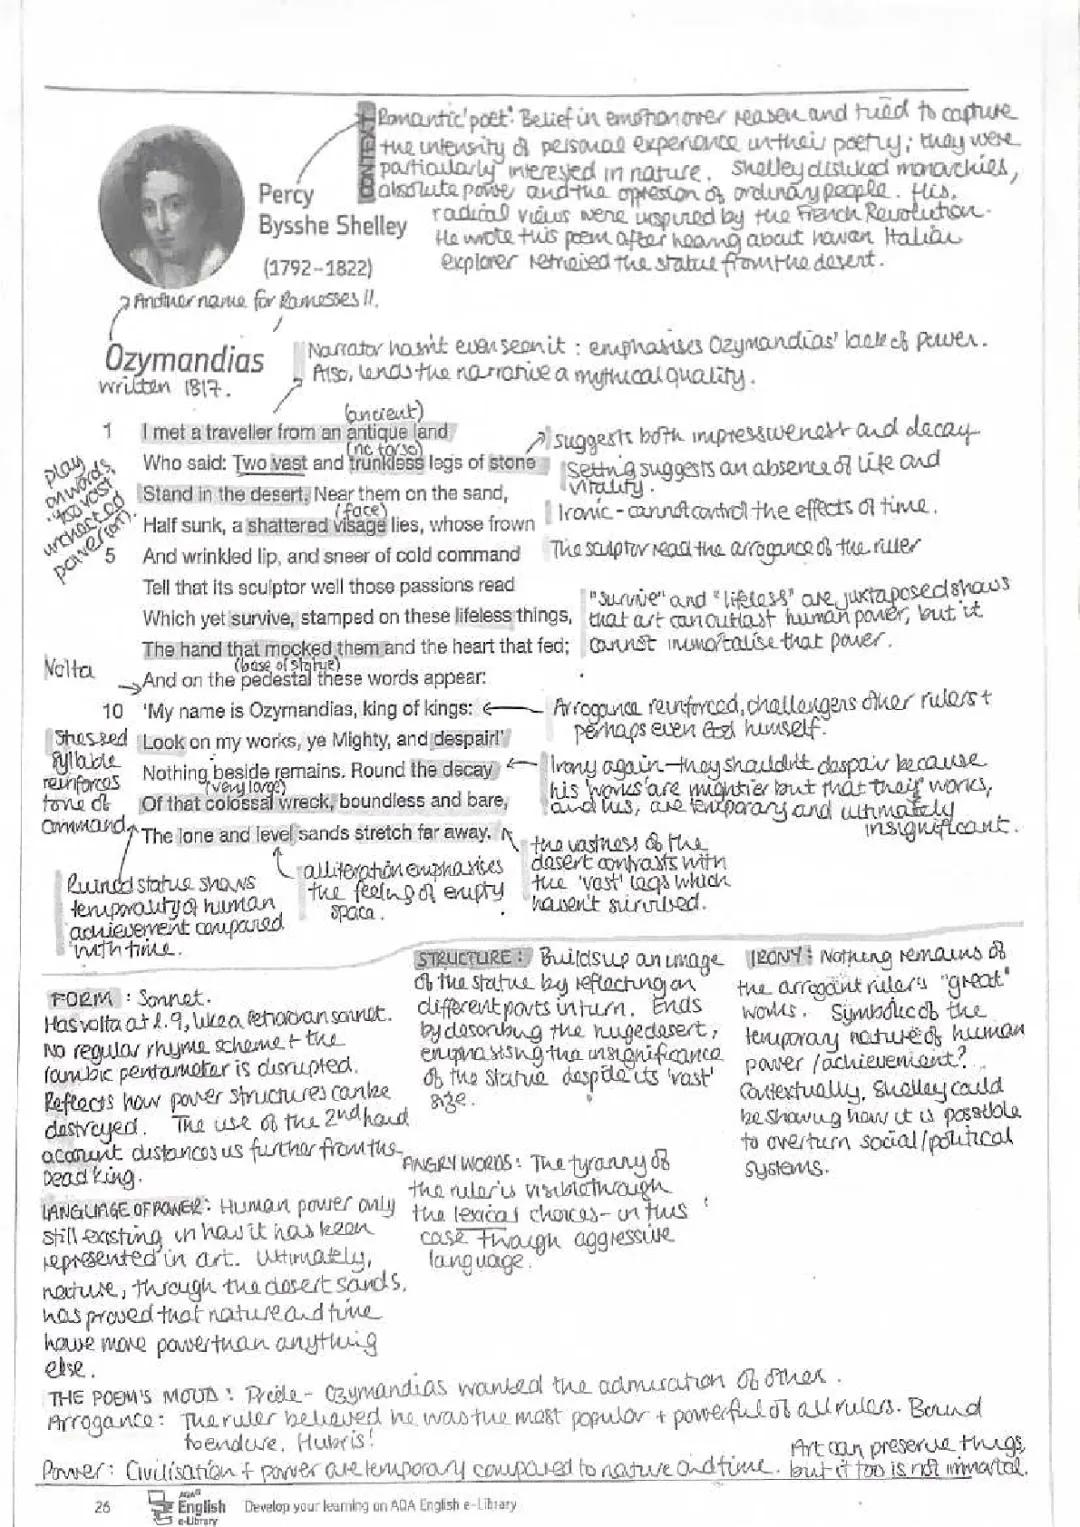 Romantic poet: Belief in emotion over reason and tried to capture
CONTEXT
the intensity of personal experience in their poetry; they were
particularly interested in nature. Shelley disliked monarchies,
absolute power and the oppresion of ordinary people. His
radical views were inspired by the French Revolution.
He wrote this poem after hearing about how an Italian
explorer retrieved the statue from the desert.
Percy
Bysshe Shelley
(1792–1822)
Another name for Ramesses II.
Ozymandias
written 1817.
Narrator hasn't even seen it: emphasises Ozymandias' lack of power.
Also, lends the narrative a mythical quality.
(ancient)
1 I met a traveller from an antique land
(no torso)
Who said: Two vast and trunkless legs of stone
Stand in the desert. Near them on the sand,
(face)
Half sunk, a shattered visage lies, whose frown
5 And wrinkled lip, and sneer of cold command
Tell that its sculptor well those passions read
Which yet survive, stamped on these lifeless things,
The hand that mocked them and the heart that fed;
(base of statue)
And on the pedestal these words appear:
10 'My name is Ozymandias, king of kings:
Look on my works, ye Mighty, and despair!'
Nothing beside remains. Round the decay
(very large)
Of that colossal wreck, boundless and bare,
The lone and level sands stretch far away.
play
on words,
vast
unchecked
power
Volta
Stressed
syllable
reinforces
tone of
command
suggests both impressiveness and decay
Setting suggests an absence of life and
vitality.
Ironic - cannot control the effects of time.
The sculptor read the arrogance of the ruler
"survive" and "lifeless" are juxtaposed shows
that art can outlast human power, but it
cannot immortalise that power.
Arrogance reinforced, challengers other rulers +
perhaps even God himself.
Irony again - they shouldn't despair because
his 'works' are mightier but that their works,
and his, are temporary and ultimately
insignificant.
Ruined statue shows
temporality of human
achievement compared
with time.
alliteration emphasises
the feeling of empty
space.
the vastness of the
desert contrasts with
the 'vast' legs which
haven't survived.
FORM: Sonnet.
Has volta at l.9, like a Petrarchan sonnet.
No regular rhyme scheme + the
iambic pentameter is disrupted.
Reflects how power structures can be
destroyed. The use of the 2nd hand
account distances us further from the
Dead king.
LANGUAGE OF POWER: Human power only
still existing in how it has been
represented in art. Ultimately,
nature, through the desert sands,
has proved that nature and time
have more power than anything
else.
STRUCTURE: Builds up an image
of the statue by reflecting on
different parts in turn. Ends
by describing the huge desert,
emphasising the insignificance
of the statue despite its 'vast'
size.
ANGRY WORDS: The tyranny of
the ruler is visible through
the lexical choices - in this
case through aggressive
language.
IRONY: Nothing remains of
the arrogant ruler's "great"
works. Symbolic of the
temporary nature of human
power / achievement?
Contextually, Shelley could
be showing how it is possible
to overturn social/political
systems.
THE POEM'S MOOD: Pride - Ozymandias wanted the admiration of other.
Arrogance: The ruler believed he was the most popular + powerful of all rulers. Bound
to endure. Hubris!
Power: Civilisation + power are temporary compared to nature and time.
Art can preserve things,
but it too is not immortal.
26
AQA
English
e-Library
Develop your learning on AQA English e-Library